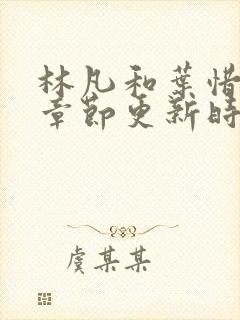 林凡和葉惜
章節更新時
虞某某